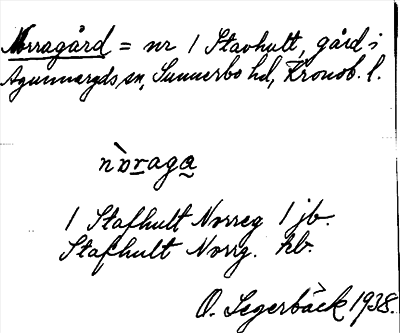 Norragård = nr 1 Stavhult, gård i
Agunnaryds sn, Sunnerbo hd, Kronob. l.
nòraga
1 Stafhult Norreg 1 jb.
Stafhult Norrg. hb.
O. Segerbäck 1938.